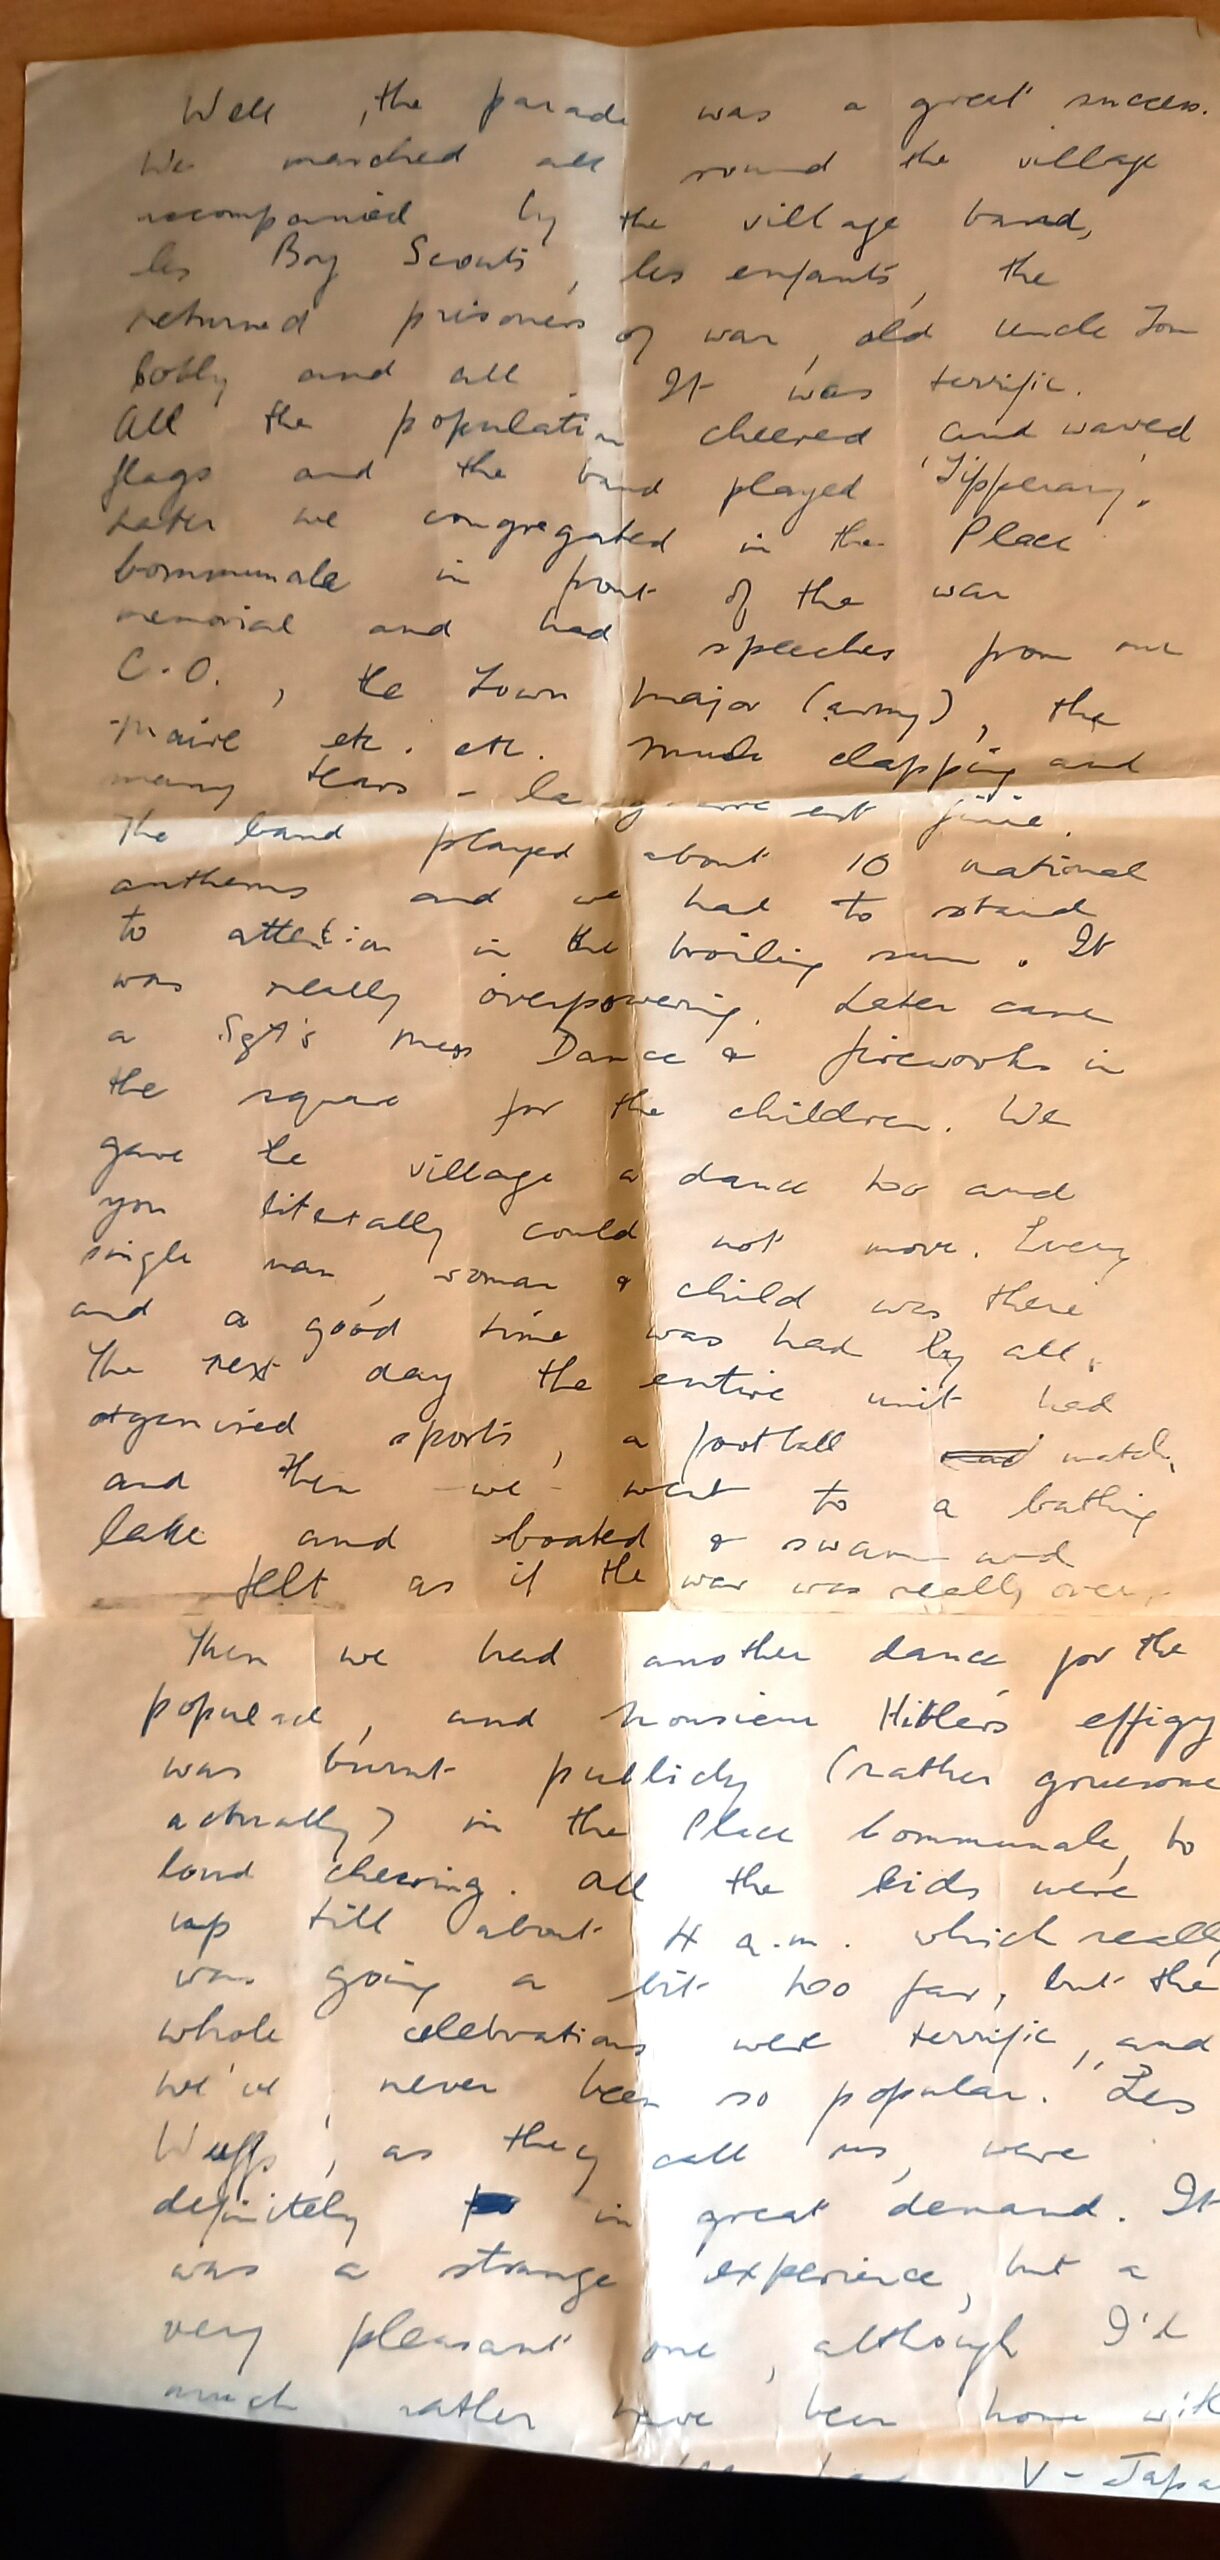 Well, the parade was a great success.
We marched all round the village
accompanied by the village band,
les Boy Scouts, les enfants, the
returned prisoners of war, old uncle Tom
Cobbly and all. It was terrific.
All the population cheered and waved
flags and the band played 'Tipperary'.
Later we congregated in the Place
Communale in front of the war
memorial and had speeches from our
C.O., the Town Major (army), the
Maire etc. etc. Much clapping and
many tears - la guerre est finie.
The band played about 10 national
anthems and we had to stand
to attention in the broiling sun. It
was really overpowering. Later came
a Sgt's Mess Dance & fireworks in
the square for the children. We
gave the village a dance too and
you literally could not move. Every
single man, woman & child was there
and a good time was had by all.
The next day the entire unit had
organised sports, a football match,
and then we went to a bathing
lake and boated & swam and
felt as if the war was really over.
Then we had another dance for the
populace, and Monsieur Hitler's effigy
was burnt publicly (rather gruesome
actually) in the Place Communale, to
loud cheering. All the kids were
up till about 4 a.m. which really
was going a bit too far, but the
whole celebrations were terrific, and
we've never been so popular. 'Les
Waffs', as they call us, were
definitely in great demand. It
was a strange experience, but a
very pleasant one, although I'd
much rather have been home with
V-Japa